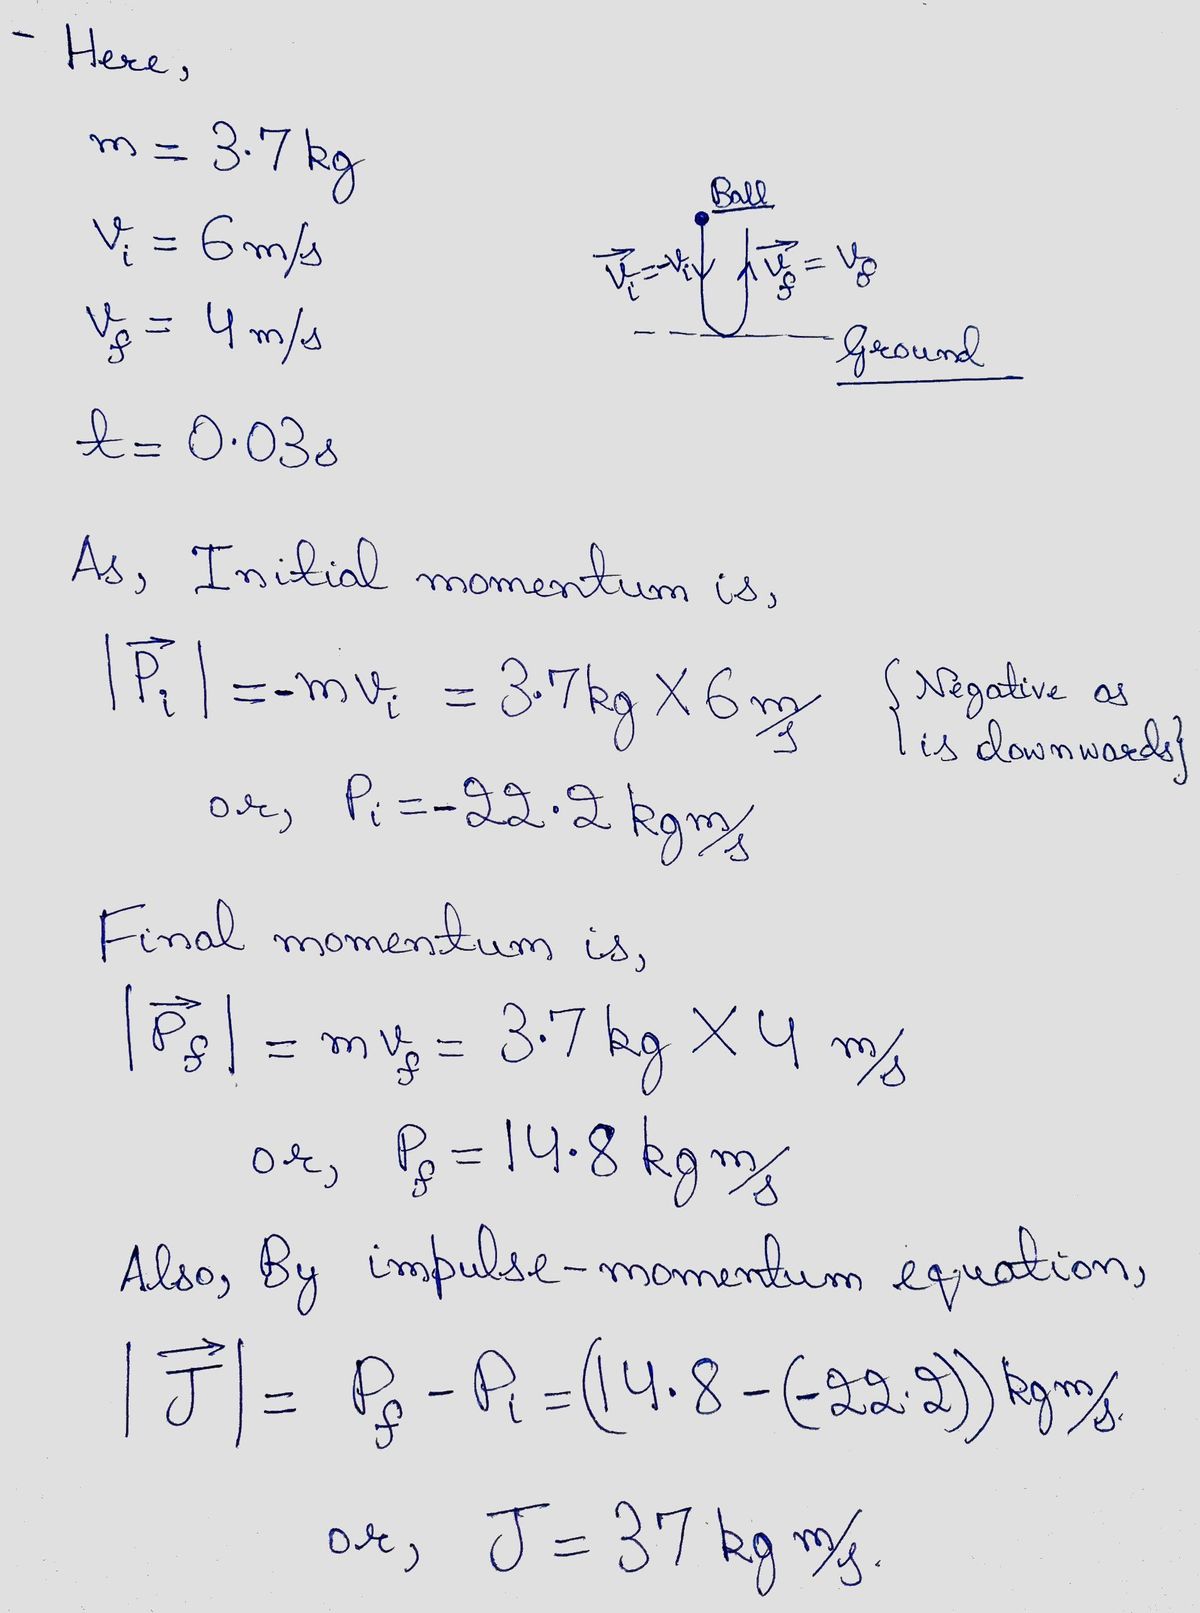 - Here,
m = 3.7 kg
Vi = 6 m/s
Vf = 4 m/s
t = 0.03s
Ball
V⃗i = -Vi
V⃗f = Vf
Ground
As, Initial momentum is,
|P⃗i| = -mVi = 3.7kg X 6 m/s {Negative as
is downwards}
or, Pi = -22.2 kgm/s
Final momentum is,
|P⃗f| = mVf = 3.7 kg X 4 m/s
or, Pf = 14.8 kgm/s
Also, By impulse-momentum equation,
|J⃗| = Pf - Pi = (14.8 - (-22.2)) kgm/s.
or, J = 37 kg m/s.